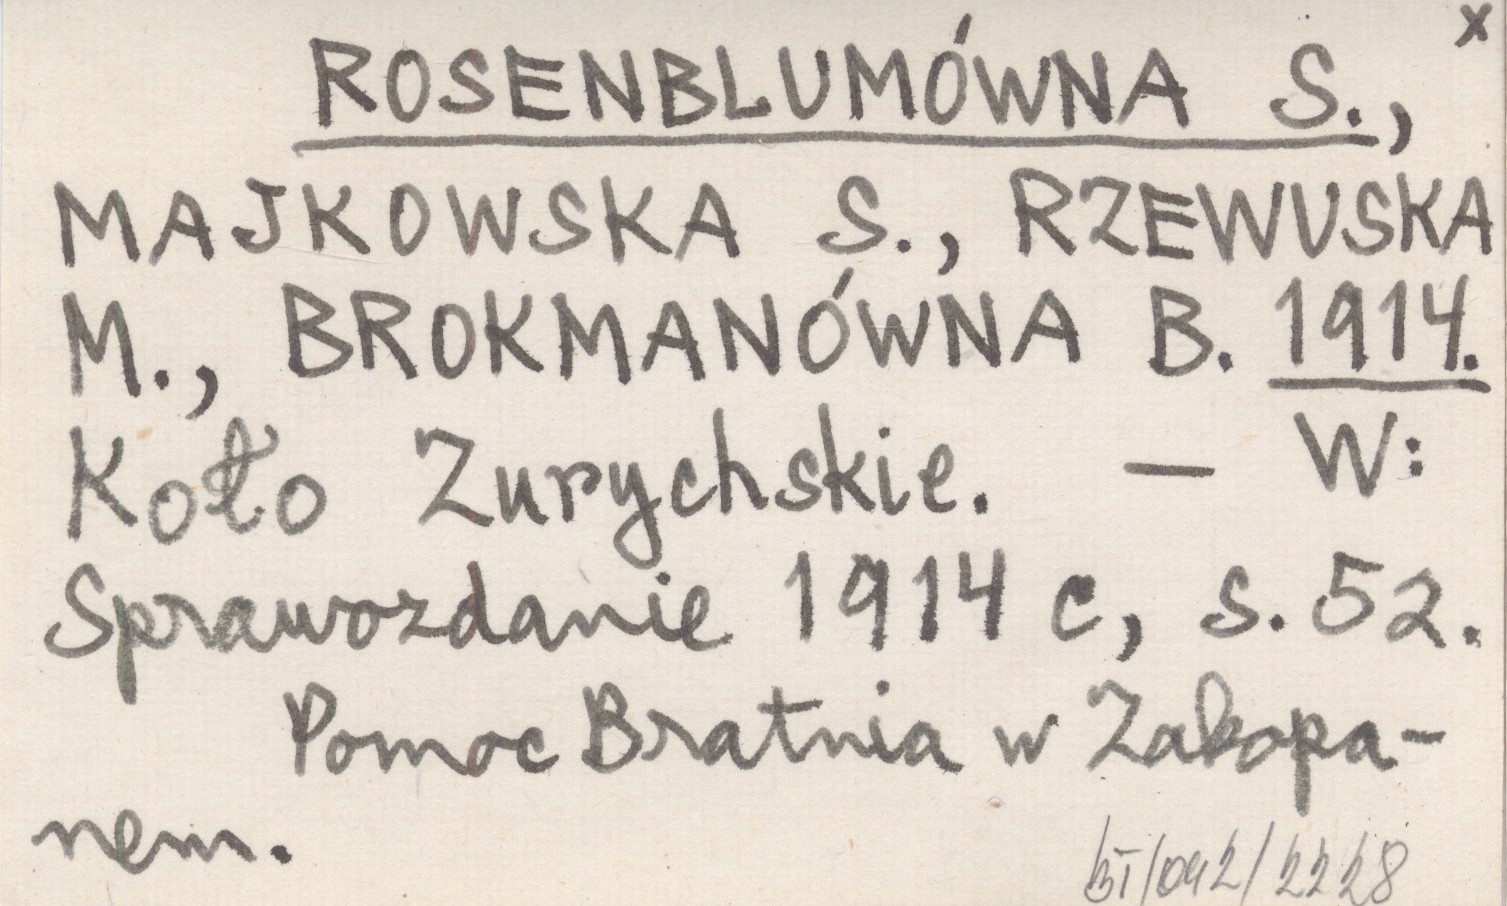 x
ROSENBLUMÓWNA S.,
MAJKOWSKA S., RZEWUSKA
M., BROKMANÓWNA B. 1914.
Koło Zurychskie. — W:
Sprawozdanie 1914 c, s. 52.
Pomoc Bratnia w Zakopa-
nem.
BI/042/2228